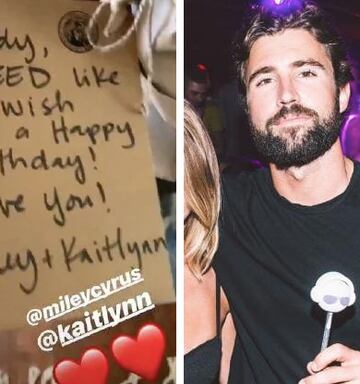 dy,
EED like
wish
a Happy
thday!
ve you!
ey + Kaitlynn
@mileycyrus
@kaitlynn